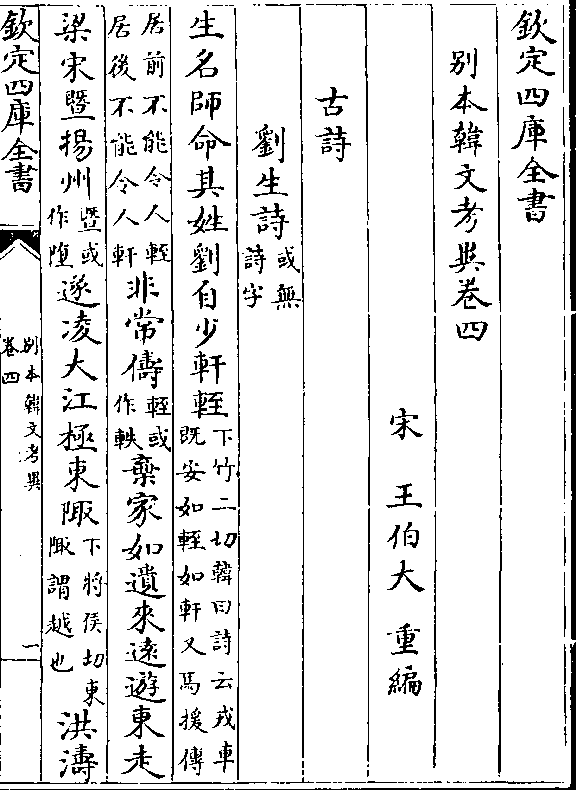 欽定四庫全書
別本韓文考異卷四
宋　王伯大　重編
古詩
劉生詩或無詩字
生名師命其姓劉自少軒輊下竹二切韓曰詩云戎車既安如輊如軒又馬援傳
居前不能令人輊居後不能令人軒非常儔輊或作軼棄家如遺來遠遊東走
梁宋暨揚州暨或作墮遂凌大江極東陬下將侯切東陬謂越也洪濤
欽定四庫全書
別本韓文考異
卷四
一